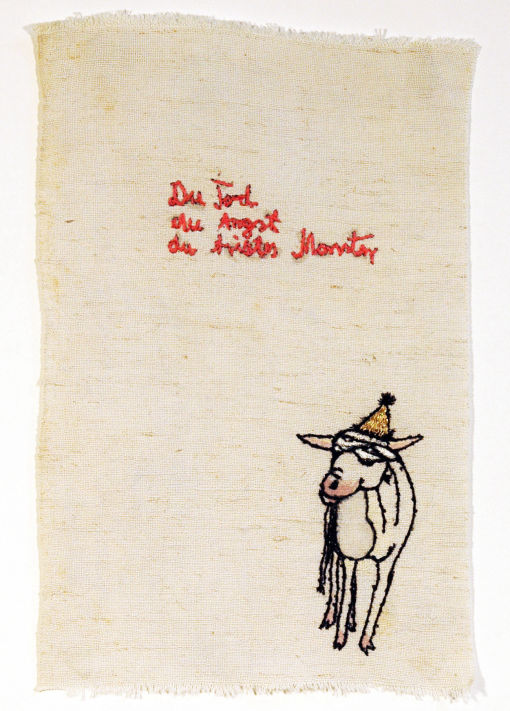 Du Tod
du Angst
du tristes Monster